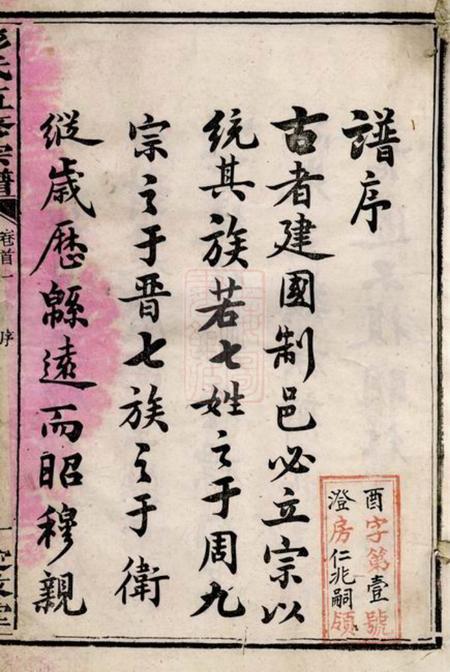 譜序
古者建國制邑必立宗以
統其族若七姓之于周九
宗之于晋七族之于衛
縱歳歷緜遠而昭穆親
酉字第壹號
澄房仁兆嗣領
氏五修宗譜
卷首一
序